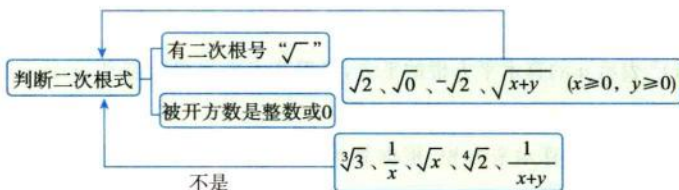 有二次根号“√ ”
判断二次根式
被开方数是整数或0
√2、√0、-√2、√(x+y) (x≥0, y≥0)
∛3、1/x、√x、∜2、1/(x+y)
不是